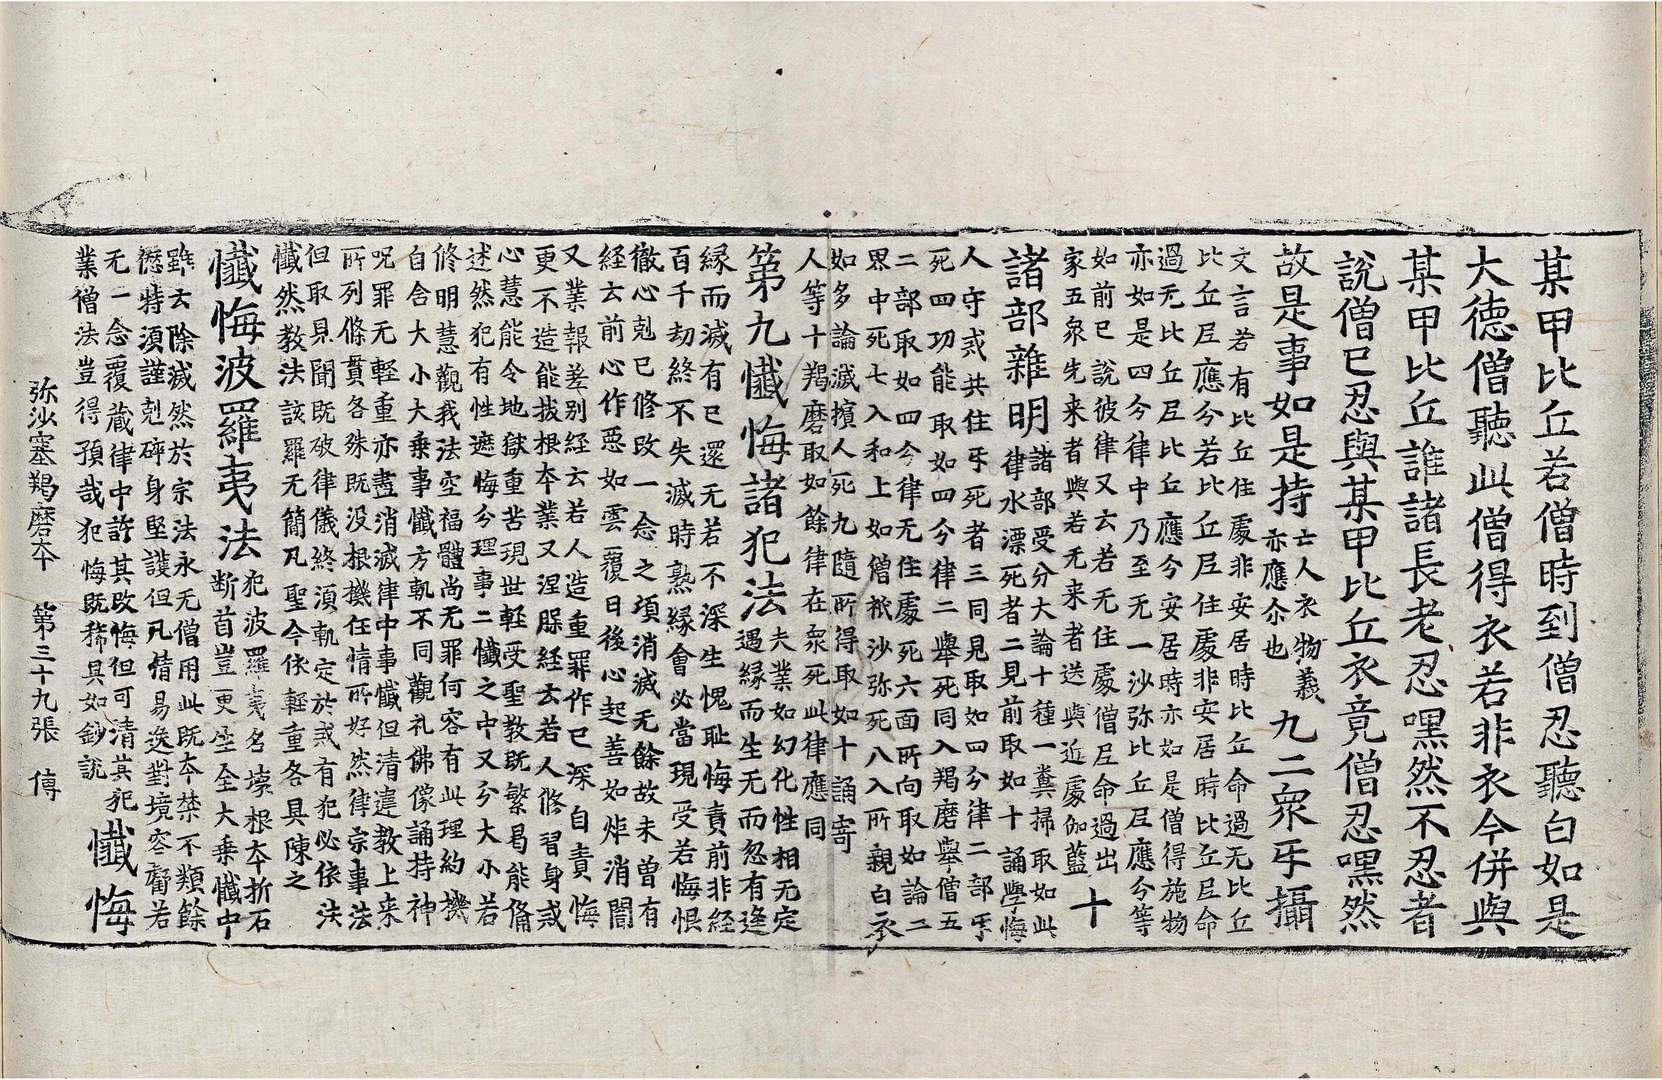 某甲比丘若僧時到僧忍聽白如是
大德僧聽此僧得衣若非衣今併與
某甲比丘誰諸長老忍嘿然不忍者
說僧已忍與某甲比丘衣竟僧忍嘿然
故是事如是持
亡人衣物義
亦應尒也
九二衆𤔫攝
文言若有比丘住處非安居時比丘命過无比丘
比丘𡰱應分若比丘𡰱住處非安居時比丘𡰱命
過无比丘𡰱比丘應今安居時亦如是僧得施物
亦如是四今律中乃至无一沙弥比丘𡰱應分等
如前已說彼律又云若无住處僧𡰱命過出
家五衆先来者與若无来者送與近處伽藍
十
諸部雜明
諸部受分大論十種一糞掃取如此
律水漂死者二見前取如十誦學悔
人守戒共住𤔫死者三同見取如四分律二部𤔫
死四功能取如四今律二舉死同入羯磨舉僧五
二部取如四今律无住處死六面所向取如論二
界中死七入和上如僧祇沙弥死八入所親白衣
如多論滅擯人死九隨所得取如十誦寄
人等十羯磨取如餘律在衆死此律應同
第九懺悔諸犯法
夫業如幻化性相无定
遇緣而生无而忽有逢
緣而滅有已還无若不深生愧耻悔責前非經
百千劫終不失滅時熟緣會必當現受若悔恨
徹心剋已修改一念之頃消滅无餘故未曾有
経云前心作惡如雲覆日後心起善如炬消闇
又業報差别経云若人造重罪作已深自責悔
更不造能拔根本業又涅槃経云若人修習身戒
心慧能令地獄重苦現世軽受聖教旣繁曷能俻
述然犯有性遮悔分理事二懺之中又分大小若
修明慧觀我法空福體尚无罪何容有此理約機
自含大小大乗事懺方軌不同觀礼佛像誦持神
呪罪无軽重亦盡消滅律中事懺但清違教上来
所列條貫各殊旣没根機任情所好然律宗事法
但取見聞旣破律儀終湏軌定於戒有犯必依法
懺然教法該羅无簡凡聖今依軽重各具陳之
懺悔波羅夷法
犯波羅夷名壞根本折石
断首豈更生全大乗懺中
雖云除滅然於宗法永无僧用此旣本禁不類餘
𠎝特湏謹剋碎身堅護但凡情易逸對境容虧若
无一念覆蔵律中許其改悔但可清其犯
業僧法豈得預哉犯悔旣稀具如鈔說
懺悔
弥沙塞羯磨本　第三十九張　傳